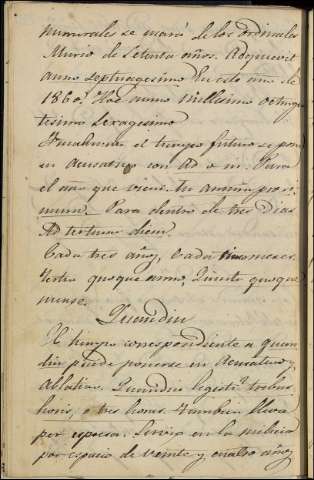 numerales se usará de los ordinales
Murio de setenta años. Adquievit
anno septuagesimo En este año de
1860. Hoc anno millesimo octingen
tesimo sexagesimo
Igualmente el tiempo futuro se pon
en acusativo con ad o in. Para
el año que viene. In annum proxi
mum. Para dentro de tres dias
Ad tertium diem
Cada tres años, Cada cinco meses
tertio quoque anno, Quinto quoque
mense.
Quandiu
El tiempo correspondiente a quan
diu puede ponerse en Acusativo y
Ablativo. Quandiu legisti? tribus
horis, o tres horas. Tambien lleva
per expresa. Sirvio en la milicia
por espacio de veinte y cuatro años